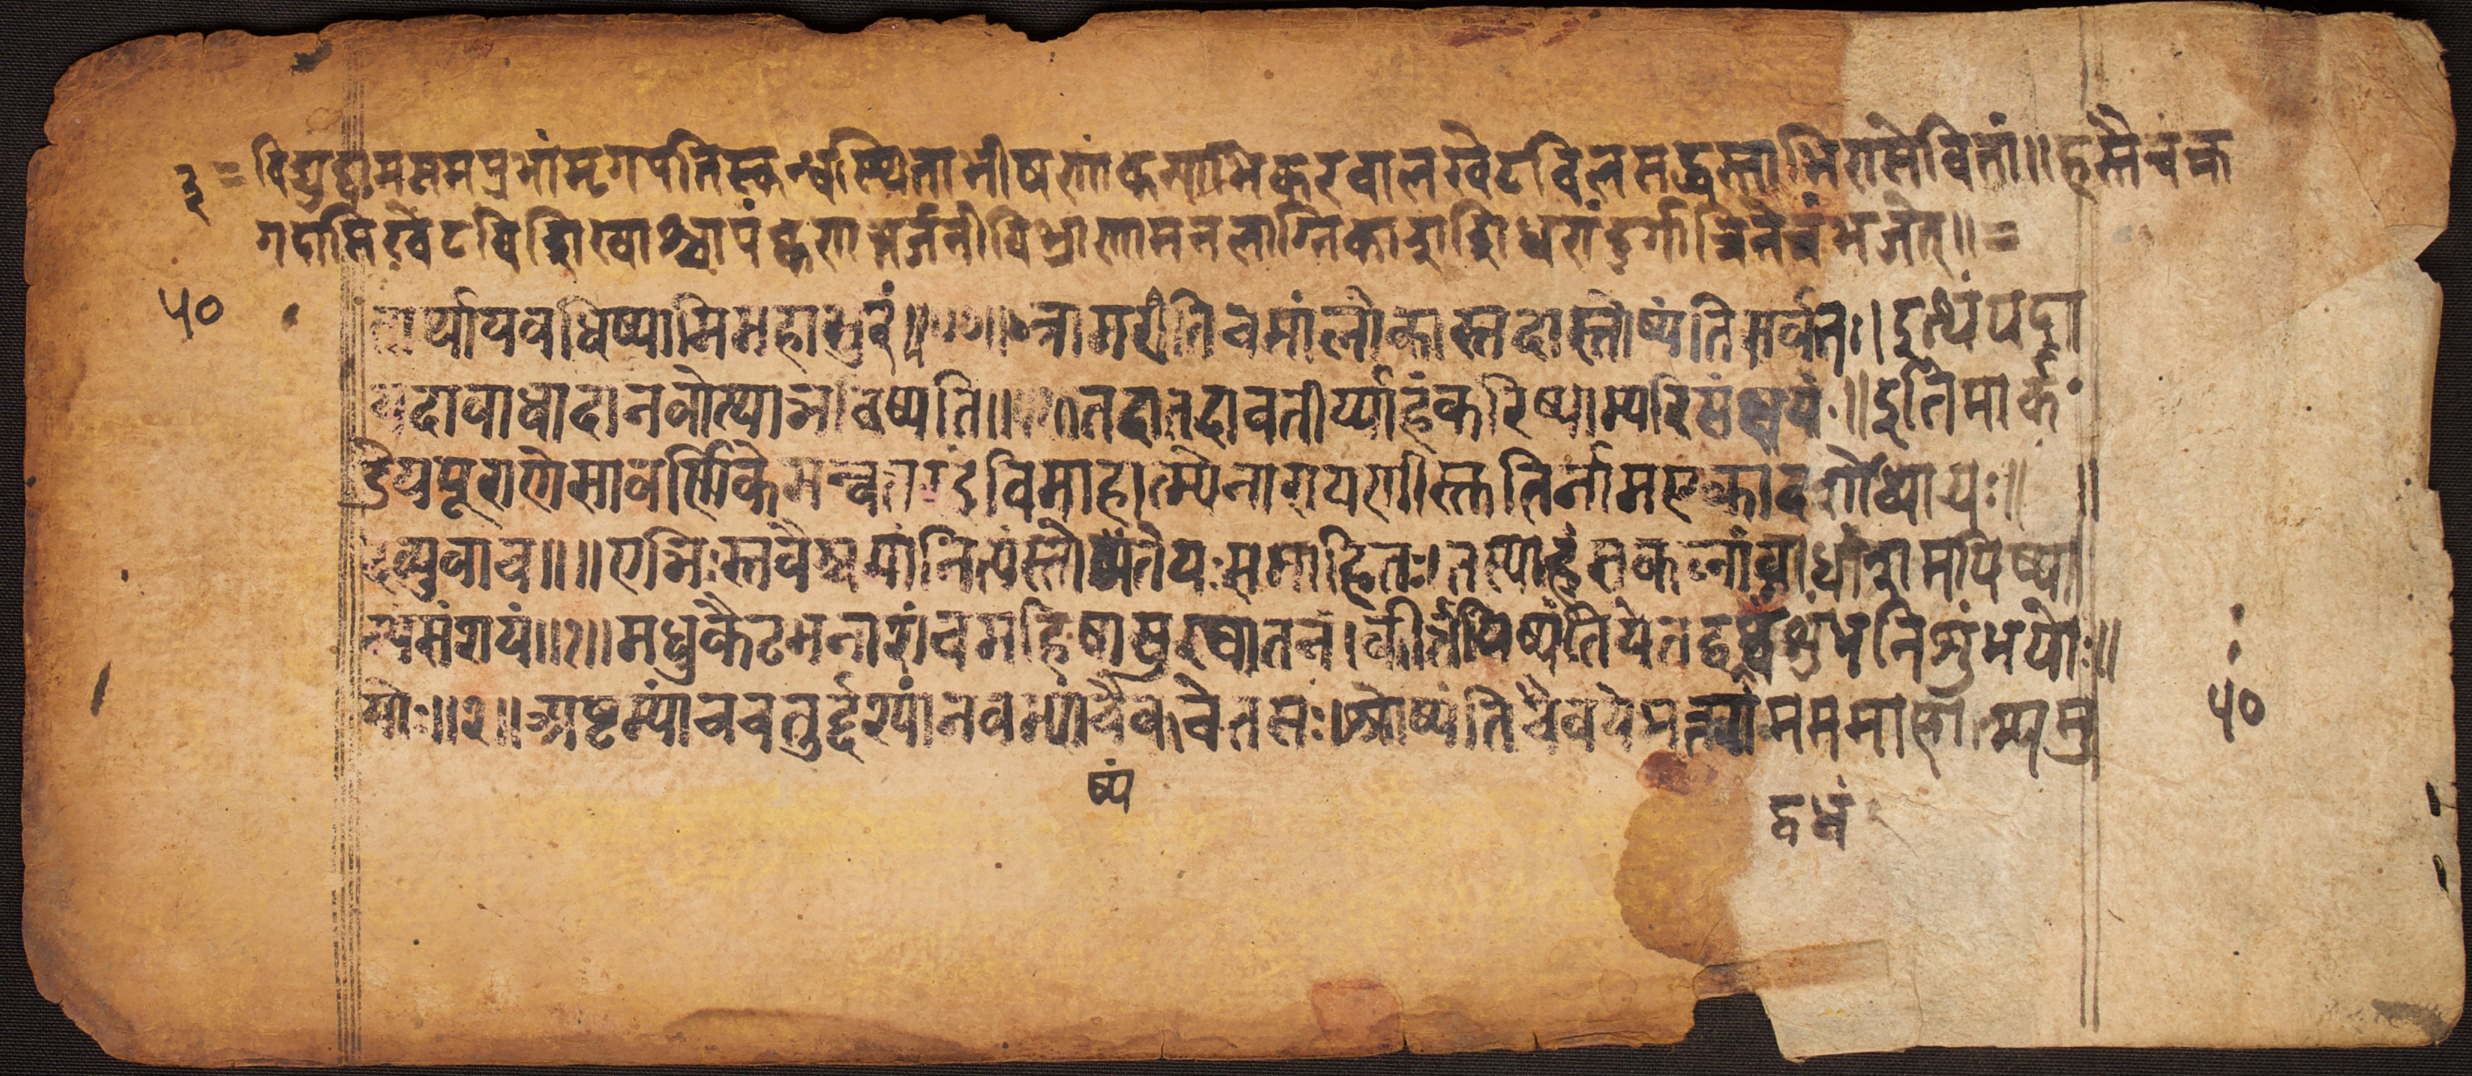 ३ = विद्युद्दामसमप्रभांमृगपतिस्कन्धस्थितांभीषणांकन्याभिकरवालखेटविलसद्धस्ताभिरासेवितां॥हस्तैचक्र
गदासिखेटविशिखाश्चापंगुणंतर्जनीविभ्राणामनलात्मिकाशशिधरांदुर्गात्रिनेत्रंभजेत्॥=
५० त्रार्यायवधिष्यामिमहासुरं॥ भ्रामरीतिचमांलोकास्तदास्तोष्यंतिसर्वतः।इत्थंयदा
यदावाधादानवोत्थाभविष्यति॥ तदातदावतीर्य्याहंकरिष्याम्यरिसंक्षयं॥इतिमार्कं
डेयपूराणेसावर्णिकेमन्वन्तरेदेविमाहात्म्येनारायणीस्तुतिर्नामएकादशोध्यायः॥ ॥
देव्युवाच॥॥एभिःस्तवैश्चमांनित्यंस्तोष्यतेयःसमाहितः।तस्याहंसकलांवाधांशमयिष्या
म्यसंशयं॥१॥मधुकैटभनाशंचमहिषासुरघातनं।कीर्तयिष्यंतियेतद्वद्वधंशुंभनिशुंभयोः॥
भयोः॥२॥अष्टम्यांचचतुर्द्दश्यांनवम्यांचैकचेतसः।श्रोष्यंतिचैवयेभक्त्यामममाहात्म्यमु ५०
ष्यं
द्वधं